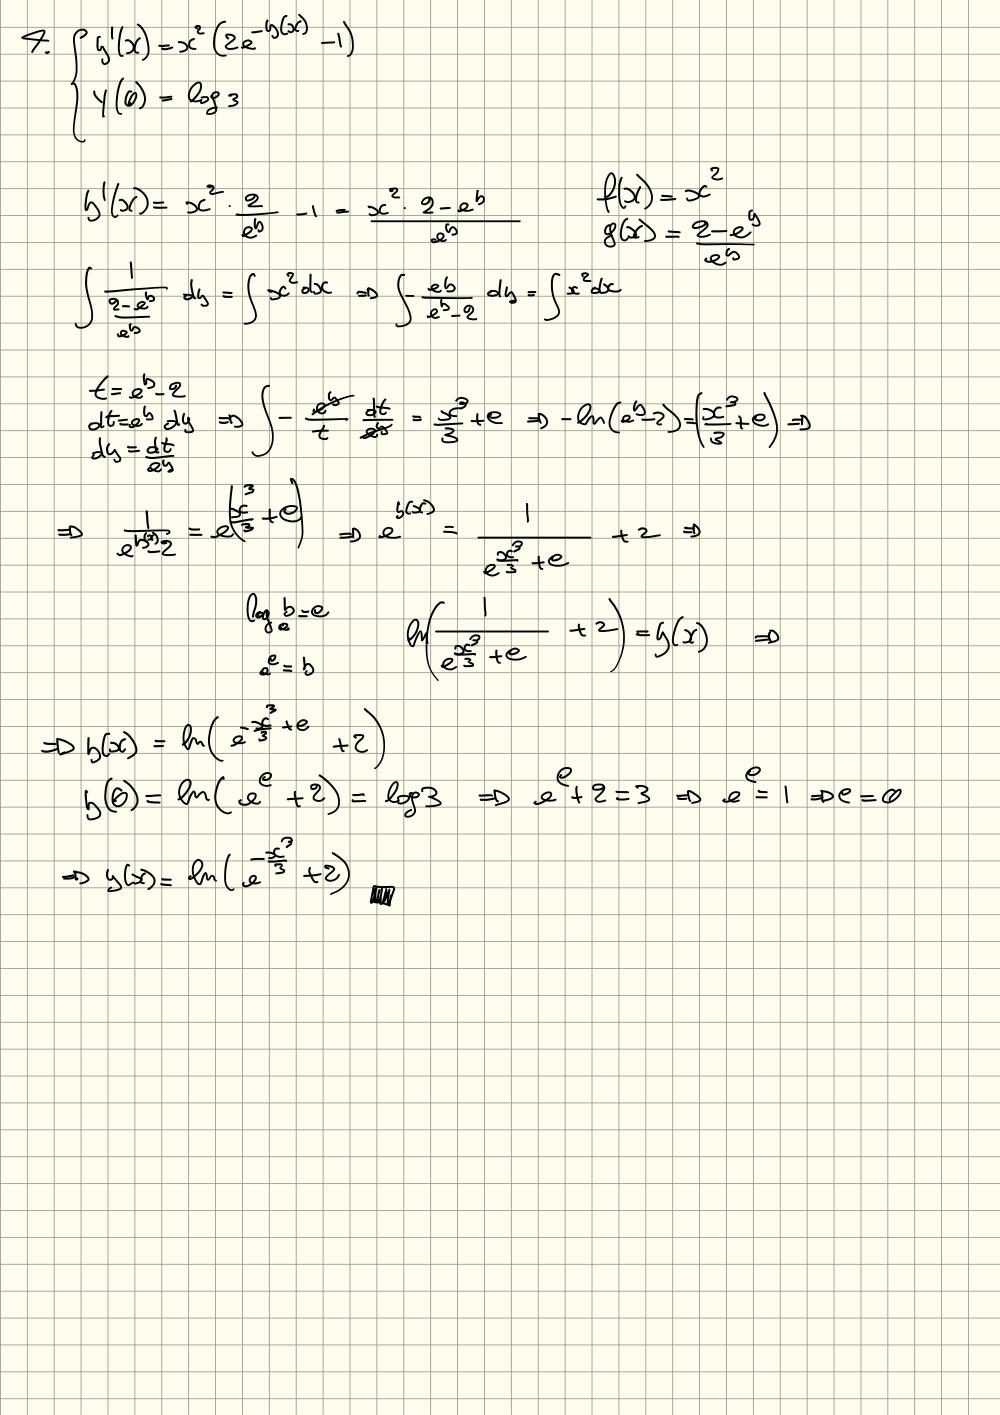 4. { y'(x) = x² (2e^{-y(x)} - 1)
y(0) = log 3
y'(x) = x² · 2/e^y - 1 = x² · 2 - e^y / e^y
f(x) = x²
g(x) = 2 - e^y / e^y
∫ 1/((2 - e^y)/e^y) dy = ∫ x² dx ⇒ ∫ - e^y/(e^y - 2) dy = ∫ x² dx
t = e^y - 2
dt = e^y dy ⇒ ∫ - e^y/t dt/e^y = x³/3 + c ⇒ - ln(e^y - 2) = (x³/3 + c) ⇒
dy = dt/e^y
⇒ 1/(e^{y(x)} - 2) = e^{(x³/3 + c)} ⇒ e^{y(x)} = 1/(e^{x³/3 + c}) + 2 ⇒
log_e b = c
e^c = b
ln(1/(e^{x³/3 + c}) + 2) = y(x) ⇒
⇒ y(x) = ln(e^{-x³/3 + c} + 2)
y(0) = ln(e^c + 2) = log 3 ⇒ e^c + 2 = 3 ⇒ e^c = 1 ⇒ c = 0
⇒ y(x) = ln(e^{-x³/3} + 2)